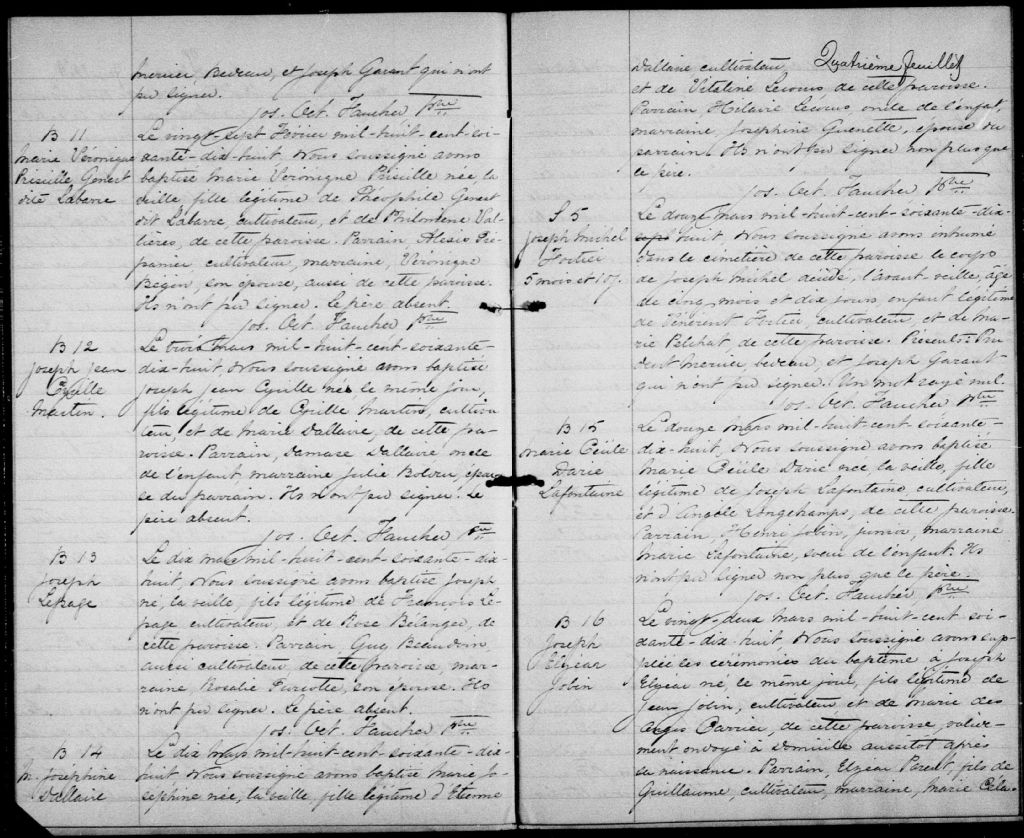 Mercier Bedeau, et Joseph Garant qui n'ont
pu signer.
Jos. Oct. Faucher Ptre
B 11
Marie Véronique
Priscille Genest
dite Labarre
Le vingt-sept Février mil-huit-cent-soi-
xante-dix-huit, Nous soussigné avons
baptisé Marie Véronique Priscille née la
veille fille légitime de Théophile Genest
dit Labarre, cultivateur, et de Philomène Val-
lières, de cette paroisse. Parrain, Alexis Tré-
panier, cultivateur, marraine, Véronique
Bégin, son épouse, aussi de cette paroisse.
Ils n'ont pu signer. Le père absent.
Jos. Oct. Faucher Ptre
B 12
Joseph Jean
Cyrille
Martin.
Le trois Mars mil-huit-cent-soixante-
dix-huit, Nous soussigné avons baptisé
Joseph Jean Cyrille né, le même jour,
fils légitime de Cyrille Martin, cultiva-
teur, et de Marie Dallaire, de cette pa-
roisse. Parrain, Damase Dallaire oncle
de l'enfant marraine Julie épou-
se du parrain. Ils n'ont pu signer. Le
père absent.
Jos. Oct. Faucher Ptre
B 13
Joseph
Lepage
Le dix mars mil-huit-cent-soixante-dix-
huit, Nous soussigné avons baptisé Joseph
né, la veille, fils légitime de François Le-
page cultivateur, et de Rose Bélanger, de
cette paroisse. Parrain Guy Beaudoin,
aussi cultivateur de cette paroisse, mar-
raine, Rosalie Turcotte, son épouse. Ils
n'ont pu signer. Le père absent.
Jos. Oct. Faucher Ptre
B 14
M. Joséphine
Dallaire
Le dix Mars mil-huit-cent-soixante-dix-
huit Nous soussigné avons baptisé Marie Jo-
sephine née, la veille, fille légitime d'Etienne
Quatrième feuillet
Dallaire cultivateur
et de Vitaline Lecours de cette paroisse.
Parrain, Hilaire Lecours, oncle de l'enfat,
marraine, Josephine Guenette, épouse du
parrain. Ils n'ont pu signer non plus que
le père.
Jos. Oct. Faucher Ptre
S 5
Joseph Michel
Fortier
5 mois et 10 j.
Le douze Mars mil-huit-cent-soixante-dix-
sept huit, Nous soussigné avons inhumé
dans le cimetière de cette paroisse le corps
de Joseph Michel décédé, l'avant veille, âgé
de cinq mois et dix jours, enfant légitime
de Vénérent Fortier, cultivateur, et de Ma-
rie Pelchat de cette paroisse. Présents: Pru-
dent Mercier, bedeau, et Joseph Garant
qui n'ont pu signer. Un mot rayé nul.
Jos. Oct. Faucher Ptre
B 15
Marie Cécile
Darie
Lafontaine
Le douze Mars mil-huit-cent-soixante-
dix-huit, Nous soussigné avons baptisé
Marie Cécile Darie née la veille, fille
légitime de Joseph Lafontaine cultivateur,
et d'Angèle Longchamps, de cette paroisse.
Parrain, Henri Jobin, junior, marraine
Marie Lafontaine, soeur de l'enfant. Ils
n'ont pu signer non plus que le père.
Jos. Oct. Faucher Ptre
B 16
Joseph
Elzéar
Jobin
Le vingt-deux Mars mil-huit-cent-soi-
xante-dix-huit, Nous soussigné avons sup-
pléé les cérémonies du baptême à Joseph
Elzéar né, le même jour, fils légitime de
Jean Jobin, cultivateur, et de Marie des
Anges Carrier, de cette paroisse, valide-
ment ondoyé à domicile aussitôt après
sa naissance. Parrain, Elzéar Parent, fils de
Guillaume, cultivateur, marraine, Marie Céla-